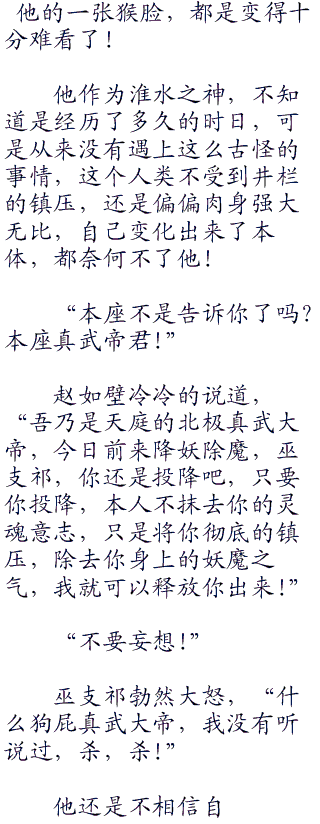 他的一张猴脸，都是变得十
分难看了！
他作为淮水之神，不知
道是经历了多久的时日，可
是从来没有遇上这么古怪的
事情，这个人类不受到井栏
的镇压，还是偏偏肉身强大
无比，自己变化出来了本
体，都奈何不了他！
“本座不是告诉你了吗？
本座真武帝君！”
赵如壁冷冷的说道，
“吾乃是天庭的北极真武大
帝，今日前来降妖除魔，巫
支祁，你还是投降吧，只要
你投降，本人不抹去你的灵
魂意志，只是将你彻底的镇
压，除去你身上的妖魔之
气，我就可以释放你出来！”
“不要妄想！”
巫支祁勃然大怒，“什
么狗屁真武大帝，我没有听
说过，杀，杀！”
他还是不相信自